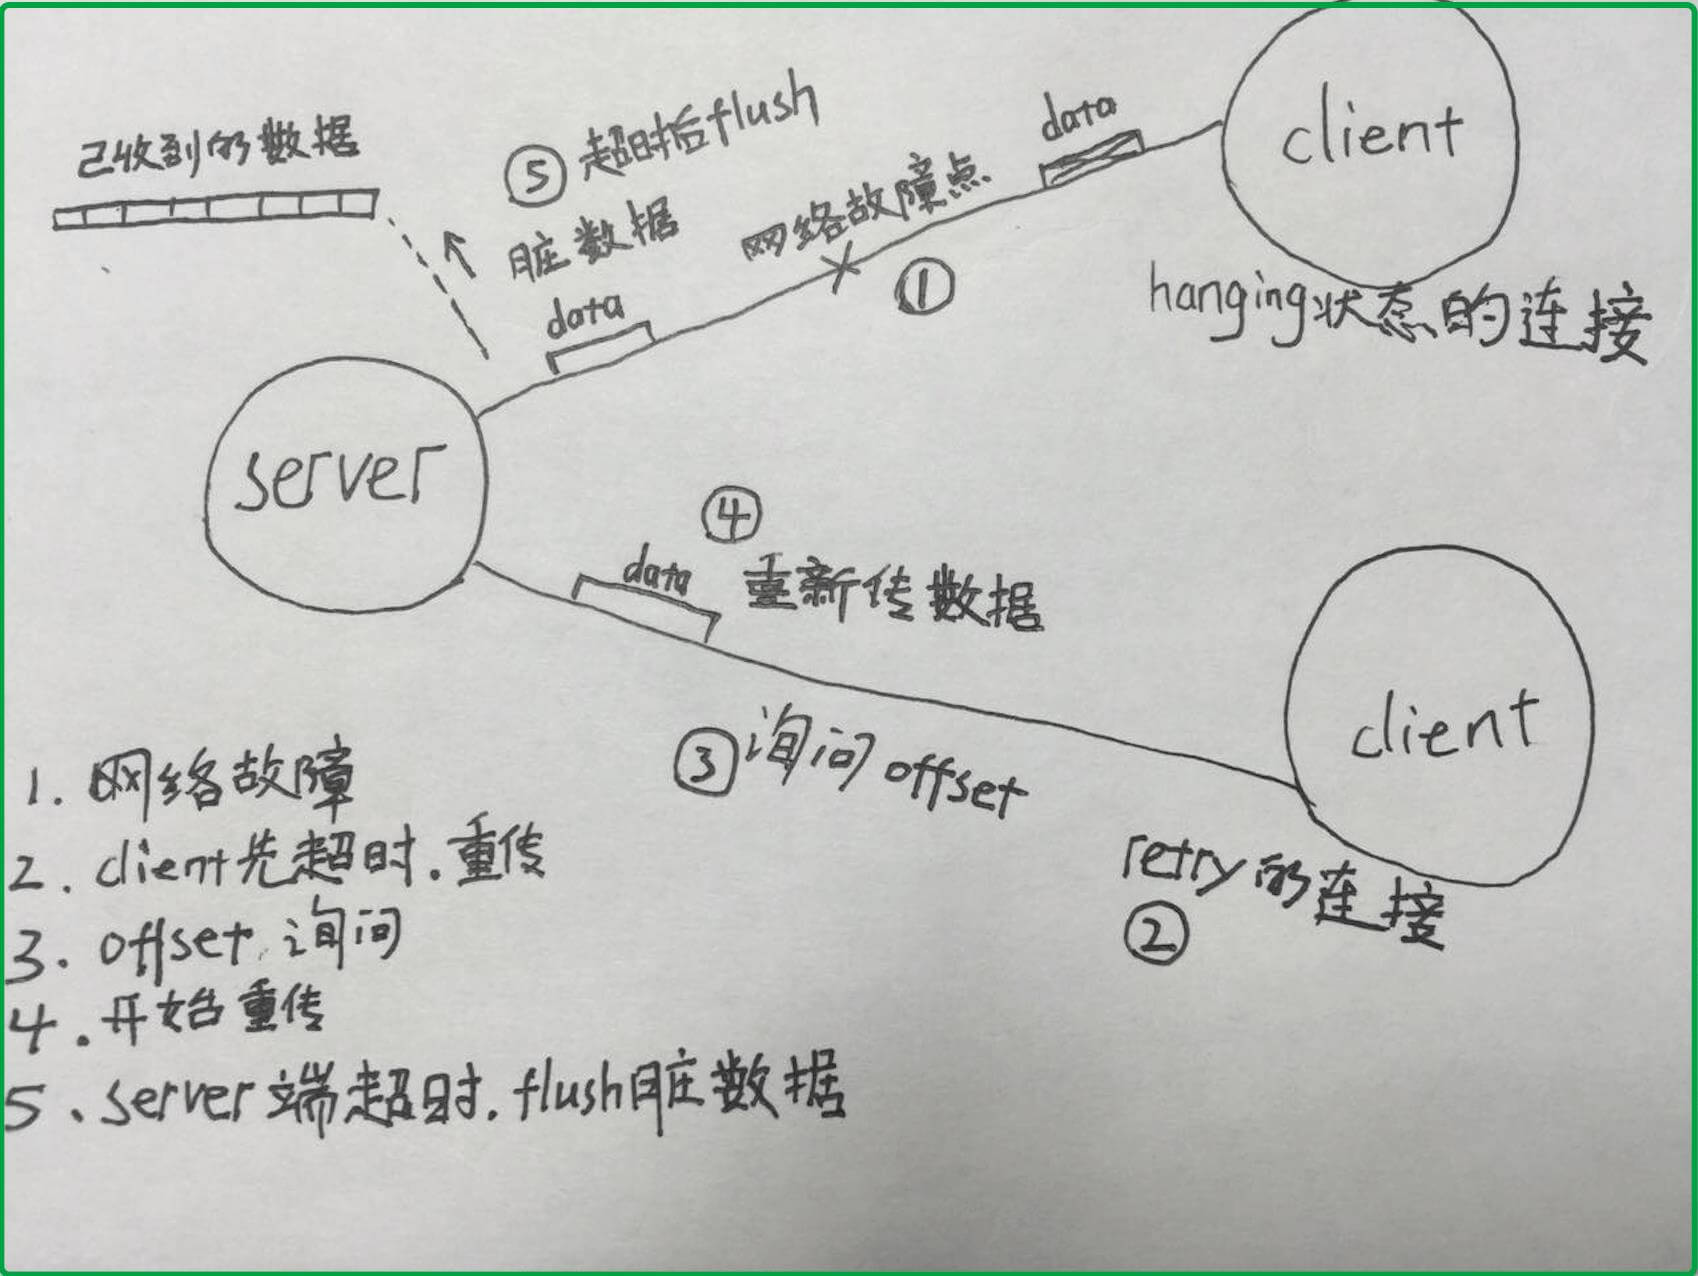 已收到的数据
⑤ 超时后flush
脏数据
data
网络故障点
①
data
client
hanging状态的连接
server
data
④
重新传数据
③ 询问 offset
client
retry的连接
②
1. 网络故障
2. client先超时.重传
3. offset 询问
4. 开始重传
5、server端超时.flush脏数据